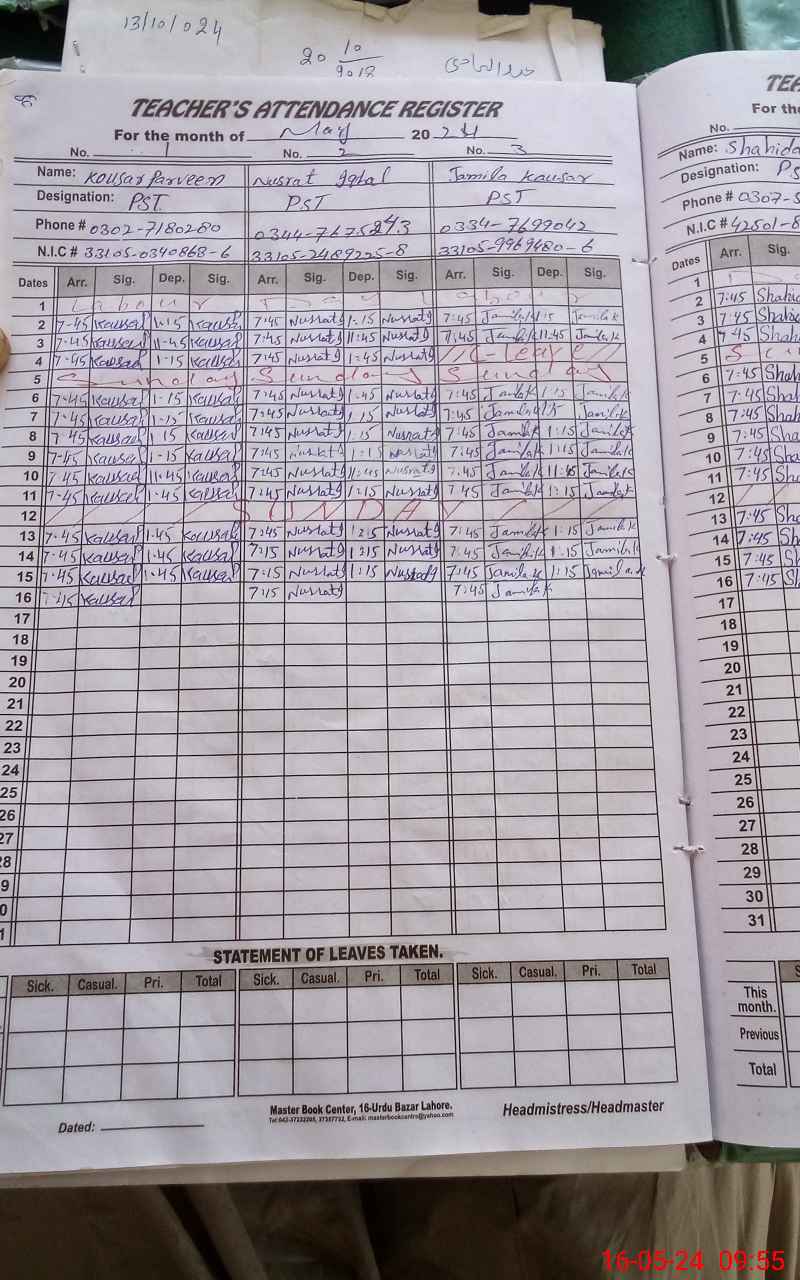 13/10/024
20 10/9018
TEACHER'S ATTENDANCE REGISTER
For the month of May 20 24
No. 1 No. 2 No. 3
Name: Kousar Parveen Nusrat Iqbal Jamila Kausar
Designation: PST PST PST
Phone # 0302-7180280 0344-7675243 0334-7699042
N.I.C # 33105-0340868-6 33105-2489225-8 33105-9969480-6
Dates Arr. Sig. Dep. Sig. Arr. Sig. Dep. Sig. Arr. Sig. Dep. Sig.
1 Labour Day Labour
2 7-45 Kausar 1-15 Kausar 7:45 Nusrat 1-15 Nusrat 7:45 Jamila.k 1:15 Jamila.k
3 7-45 Kausar 11-45 Kausar 7:45 Nusrat 11:45 Nusrat 7:45 Jamila.k 11:45 Jamila.k
4 7-45 Kausar 1-15 Kausar 7:45 Nusrat 1:45 Nusrat C-leave
5 Sunday Sunday Sunday
6 7-45 Kausar 1-15 Kausar 7:45 Nusrat 1-45 Nusrat 7:45 Jamila.k 1:15 Jamila.k
7 7-45 Kausar 1-15 Kausar 7:45 Nusrat 1,15 Nusrat 7:45 Jamila.k 15 Jamila.k
8 7-45 Kausar 1 15 Kausar 7:45 Nusrat 1:15 Nusrat 7:45 Jamila.k 1:15 Jamila.k
9 7-45 Kausar 1-15 Kausar 7:45 Nusrat 1:15 Nusrat 7:45 Jamila.k 1:15 Jamila.k
10 7-45 Kausar 11-45 Kausar 7:45 Nusrat 11:45 Nusrat 7:45 Jamila.k 11:45 Jamila.k
11 7-45 Kausar 1-45 Kausar 7:45 Nusrat 1:15 Nusrat 7:45 Jamila.k 1:15 Jamila.k
12 SUNDAY
13 7-45 Kausar 1-45 Kausar 7:45 Nusrat 1:15 Nusrat 7:45 Jamila.k 1:15 Jamila.k
14 7-45 Kausar 1-45 Kausar 7:15 Nusrat 1:15 Nusrat 7:45 Jamila.k 1:15 Jamila.k
15 7-45 Kausar 1-45 Kausar 7:15 Nusrat 1:15 Nusrat 7:45 Jamila.k 1:15 Jamila.k
16 7:15 Kausar 7:15 Nusrat 7:45 Jamila.k
17
18
19
20
21
22
23
24
25
26
27
28
9
0
1
STATEMENT OF LEAVES TAKEN.
Sick. Casual. Pri. Total Sick. Casual. Pri. Total Sick. Casual. Pri. Total
Dated:
Master Book Center, 16-Urdu Bazar Lahore.
Headmistress/Headmaster
TEA
For the
No.
Name: Shahida
Designation: PS
Phone # 0307-5
N.I.C # 42501-8
Dates Arr. Sig.
1
2 7:45 Shahid
3 7:45 Shahi
4 7:45 Shah
5 S
6 7:45 Shah
7 7:45 Shah
8 7:45 Shah
9 7:45 Sha
10 7:45 Sha
11 7:45 Sha
12
13 7:45 Sha
14 7:45 Sha
15 7:45 Sh
16 7:45 Sh
17
18
19
20
21
22
23
24
25
26
27
28
29
30
31
S
This month.
Previous
Total
16-05-24 09:55